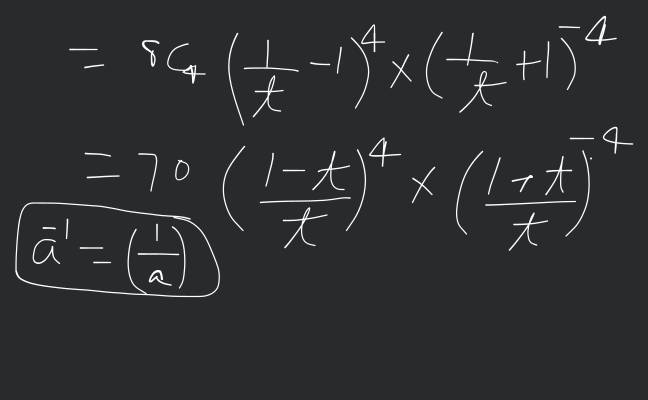 = 8C₄ (1/t - 1)⁴ × (1/t + 1)⁻⁴
= 70 ((1-t)/t)⁴ × ((1+t)/t)⁻⁴
a⁻¹ = (1/a)